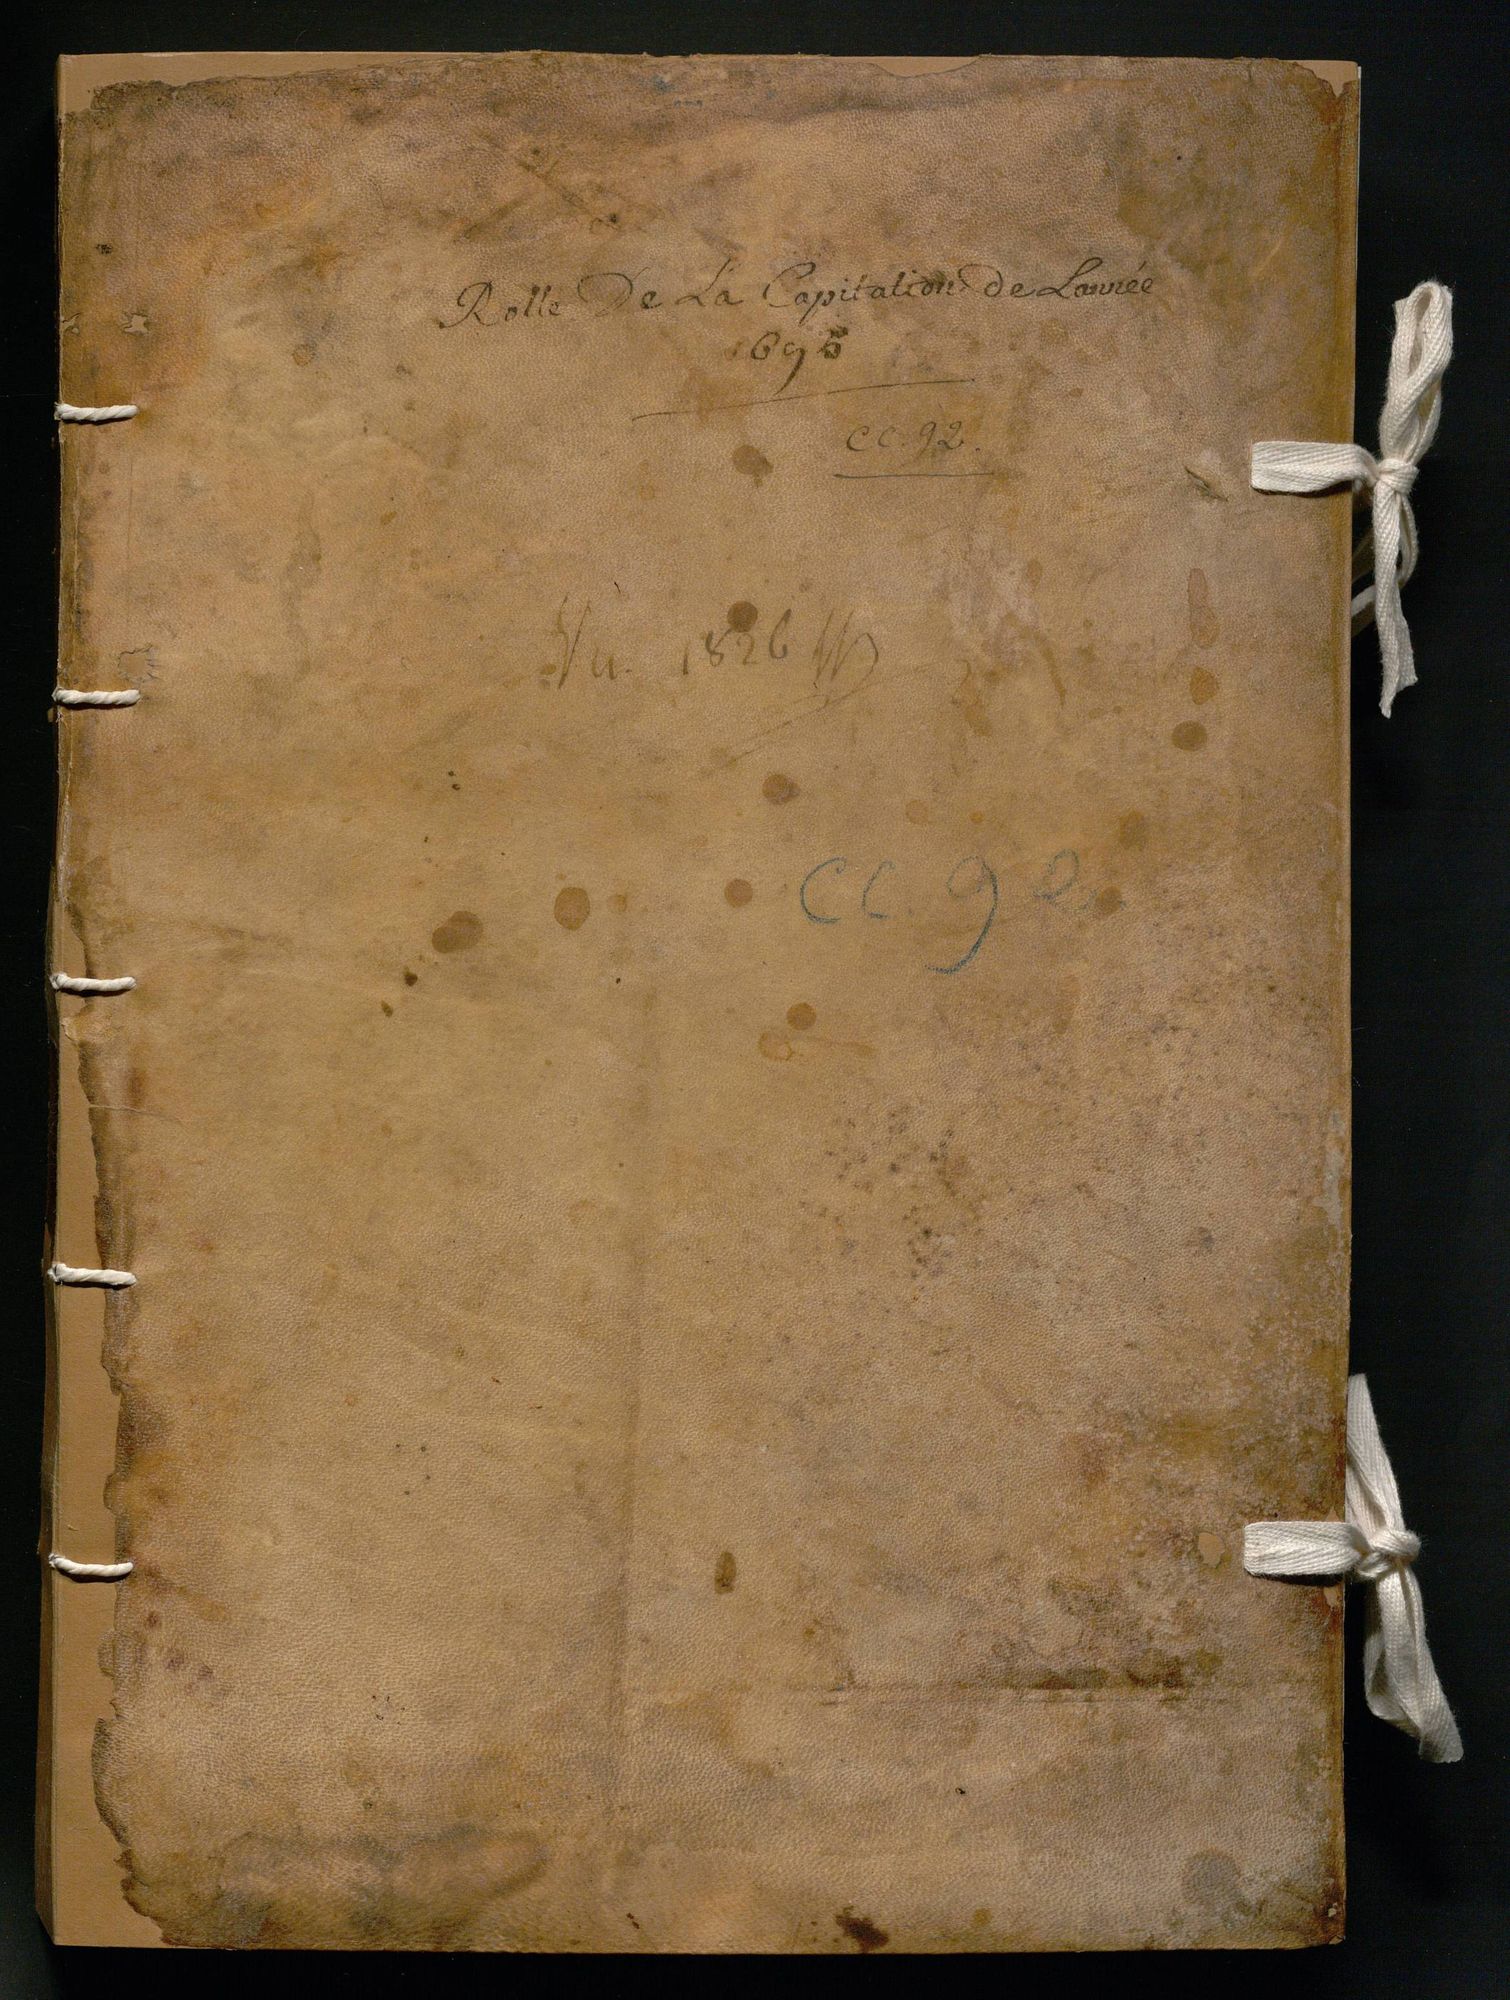 Rolle De La Capitation de Lannée
1695
CC. 92.
Vu. 1826
CC. 92.